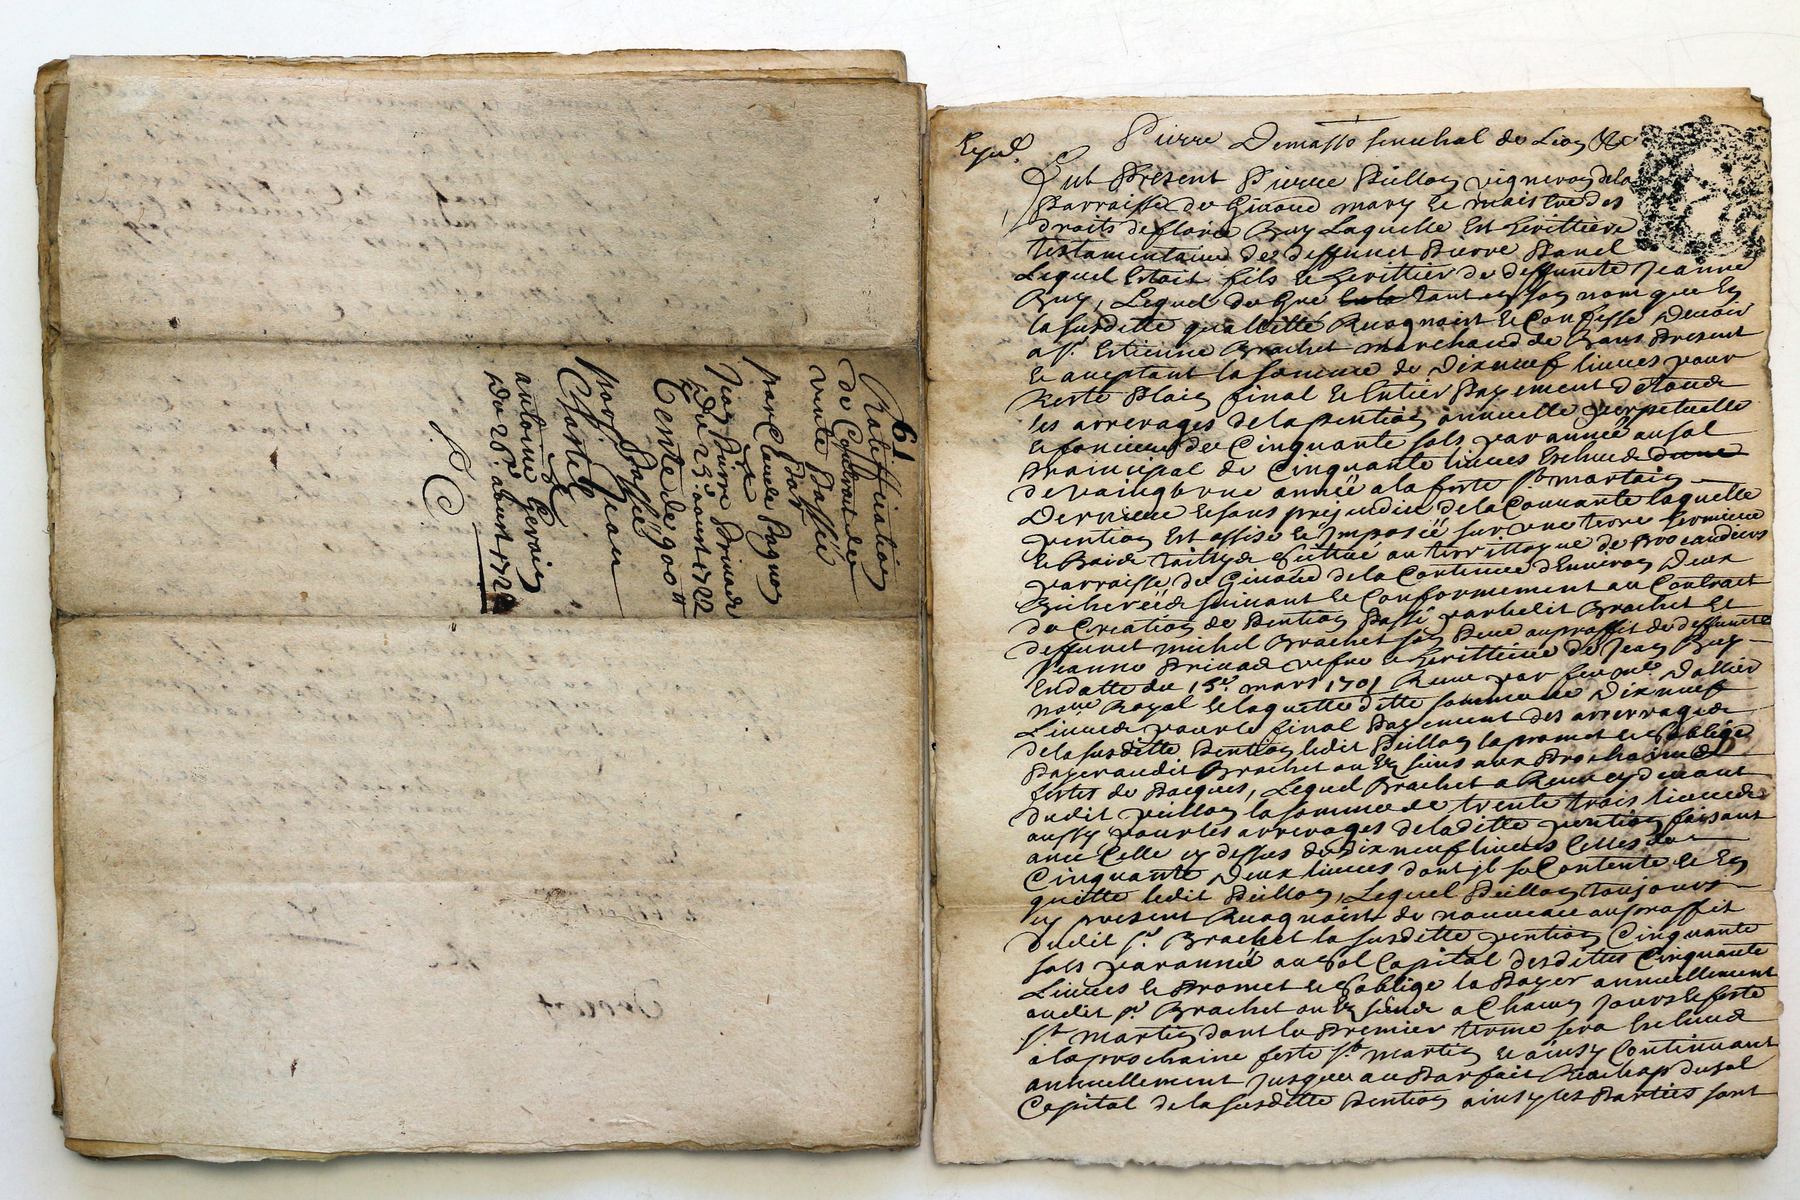 61
Rateffication
de Contrat de
vente Passée
Par
par Claude Paguon
a
Jean Pierre Privade
De 25e. aoust 1722
Cente de 900 ll
Passée
par Jean
Chartel
a
antoine Gervais
Du 26e. aoust 1722
Pierre Demasso senechal de Lion &c
Fut Present Pierre Peillon vigneron de la
Parroisse de Givord mary et maistre des
droits de Buy Laquelle Est herittiere
testamentaire de deffunct Pierre
Lequel Estoit fils et herittier de deffuncte Jeanne
Buy, Lequel de Gré tant en son nom que En
la susditte quallitté Recognoist et Confesse Devoir
a sr. Estienne Brachet marchand de Present
et aceptant la somme de Dixneuf livres pour
Reste Plain final et Entier Payement de toutte
les arrerages de la pention annuelle perpetuelle
et fonciere de Cinquante sols par année au sol
Prainçipal de Cinquante livres Escheue
de année a la feste st. martain
Derniere et sans prejudice de la Courante laquelle
pention Est assise et Imposéé sur une terre hermiture
et Bois taillys située au territtoyre de
parroisse de Givord de la Contenue d'Environ Deux
Bicheréés suivant et Conformement au Contract
de Création de Pention Passé par ledit Brachet Et
deffunct michel Brachet son Pere au proffit de deffuncte
Jeanne Privade vefve et herittiere de Jean Buy
En datte du 15e. mars 1701 Receu par feu me. Dallier
nore Royal Et laquelle ditte somme de Dixneuf
Livres pour le final Payement des arrerages
de la susditte Pention ledit Peillon la promet et s'oblige
Payer audit Brachet ou Es siens aux Prochaines
festes de Pacques, Lequel Brachet a Receu cy devant
dudit peillon la somme de trente trois livres
aussy pour les arrerages de laditte pention faisant
avec Celle cy dessus de dix neuf livres Celles de
Cinquante Deux livres dont jl se Contente et En
quitte ledit Peillon, Lequel Peillon toujours
cy present Recognoist de nouveau au proffit
dudit sr. Brachet la susditte pention Cinquante
sols par année au sol Capital desdittes Cinquante
Livres et Promet et s'oblige la Payer annuellement
audit sr. Brachet ou Es siens a Chacun jour et feste
st. martin dont le Premier terme sera Escheue
a la prochaine feste st. martin et ainsy Continuant
annuellement jusques au Parfait Reachap du sol
Capital de la susditte Pention ainsy les Parties sont